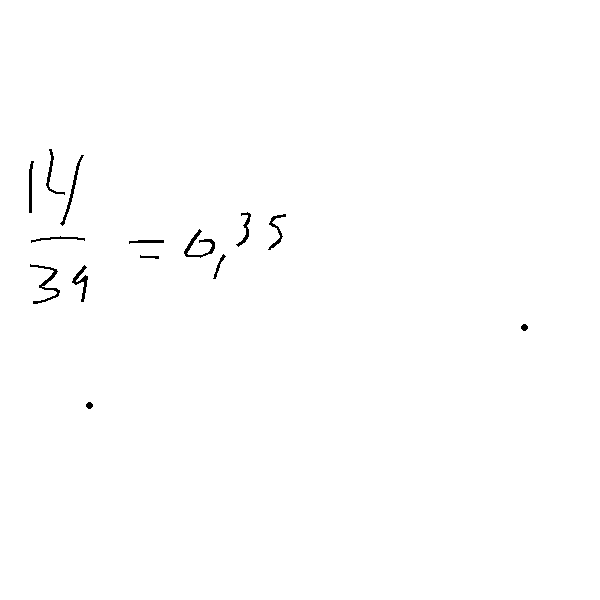 14/39 = 0,35